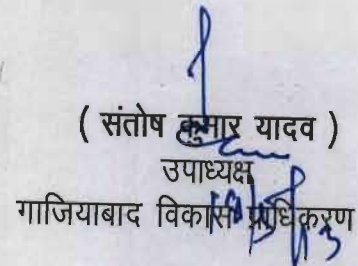 ( संतोष कुमार यादव )
उपाध्यक्ष
गाजियाबाद विकास प्राधिकरण